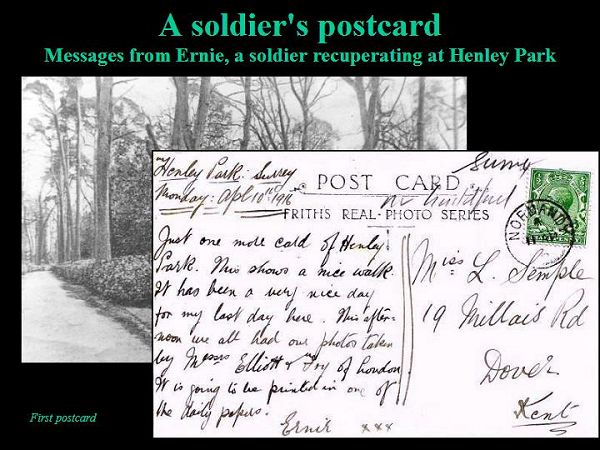 A soldier's postcard
Messages from Ernie, a soldier recuperating at Henley Park
Henley Park: Surrey
Monday: Apl 10th 1916
Surrey
POST CARD
nr Guildford
FRITHS REAL-PHOTO SERIES
Just one more card of Henley
Park. This shows a nice walk.
It has been a very nice day
for my last day here. This after-
noon we all had our photos taken
by Messrs Elliott & Fry of London.
It is going to be printed in one of
the daily papers.
Ernie xxx
NORMANDY
Miss L. Semple
19 Millais Rd
Dover
Kent
First postcard